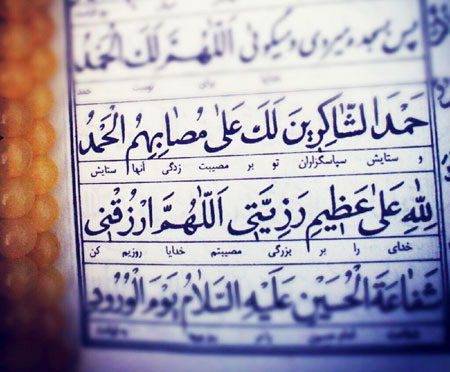 پس بسجده میروی و میگوئی اَللّٰهُمَّ لَكَ الْحَمْدُ
خدایا برای توست حمد
حَمْدَ الشّاكِرينَ لَكَ عَلىٰ مُصابِهِمْ اَلْحَمْدُ
و ستایش سپاسگزاران تو بر مصیبت زدگی آنها ستایش
لِلّٰهِ عَلىٰ عَظيمِ رَزِيَّتي اَللّٰهُمَّ ارْزُقْني
خدای را بر بزرگی مصیبتم خدایا روزیم کن
شَفاعَةَ الْحُسَيْنِ عَلَيْهِ السَّلامُ يَوْمَ الْوُرُودِ